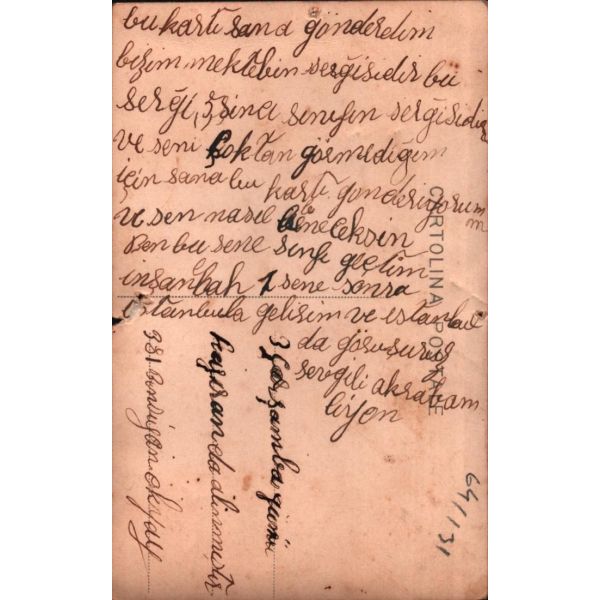 bu kartı sana gönderdim
bizim mektebin sergisidir bu
sergi, 5 sina sınıfın sergisidir
ve seni çoktan görmediğim
için sana bu kartı gonderiyorum
ve sen nasıl
Ben bu sene sınıfı geçtim
inşanlah 1 sene sonra
istanbula gelisim ve istanbul
da görüşürüz
sevgili akrabam
3 çarşamba günü
haziranda alınmıştır
CARTOLINA POSTALE
64/131